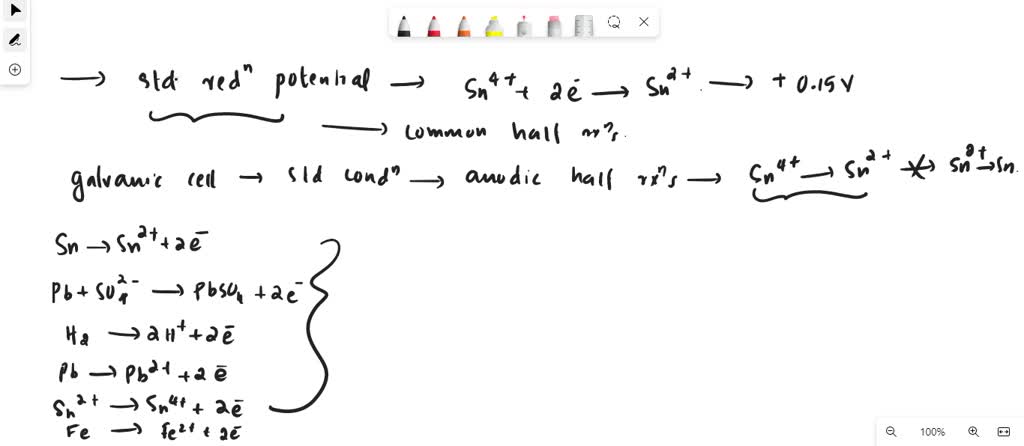 → std. redⁿ potential → Sn⁴⁺ + 2e⁻ → Sn²⁺. → + 0.15V
→ common half rxⁿs.
galvanic cell → std condⁿ → anodic half rxⁿs → Sn⁴⁺ → Sn²⁺ ↛ Sn²⁺ → Sn.
Sn → Sn²⁺ + 2e⁻
Pb + SO₄²⁻ → PbSO₄ + 2e⁻
H₂ → 2H⁺ + 2e⁻
Pb → Pb²⁺ + 2e⁻
Sn²⁺ → Sn⁴⁺ + 2e⁻
Fe → Fe²⁺ + 2e⁻
100%